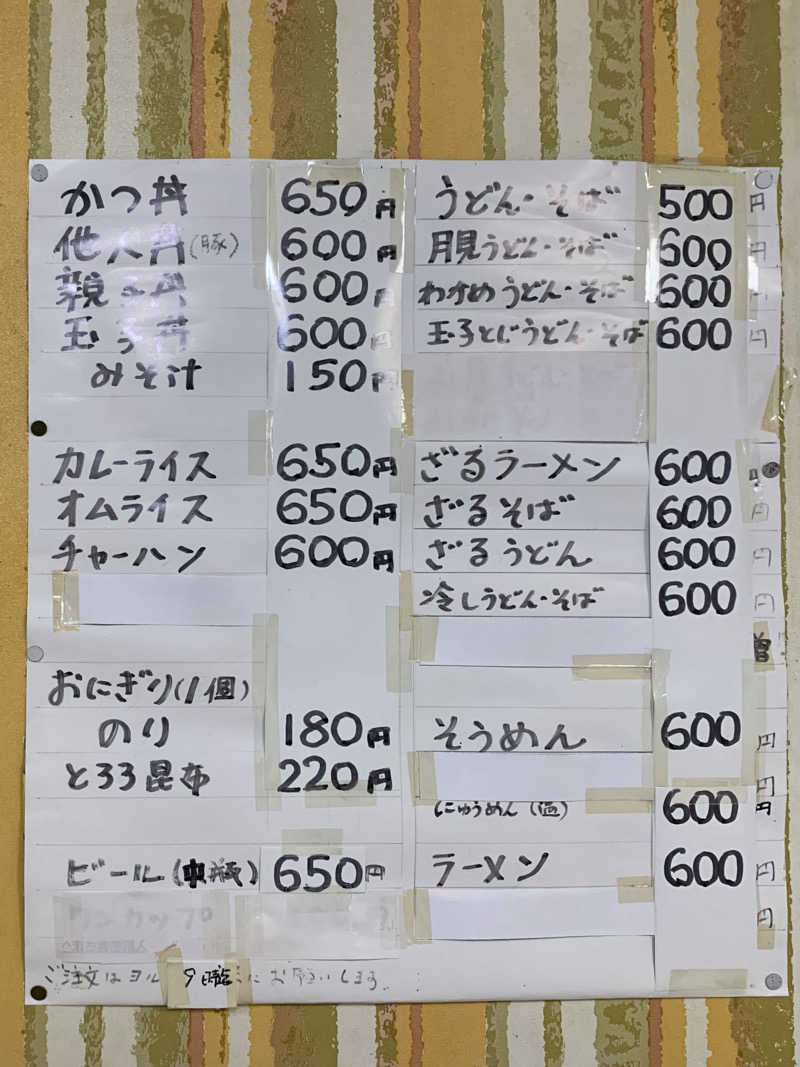 かつ丼 650円
他人丼(豚) 600円
親子丼 600円
玉子丼 600円
みそ汁 150円
カレーライス 650円
オムライス 650円
チャーハン 600円
おにぎり(1個)
のり 180円
とろろ昆布 220円
ビール(中瓶) 650円
ワンカップ
ご注文はヨル9時 にお願いします
うどん・そば 500円
月見うどん・そば 600円
わかめうどん・そば 600円
玉子とじうどん・そば 600円
ざるラーメン 600
ざるそば 600円
ざるうどん 600円
冷しうどん・そば 600円
そうめん 600円
円
にゅうめん(温) 600円
ラーメン 600円
円